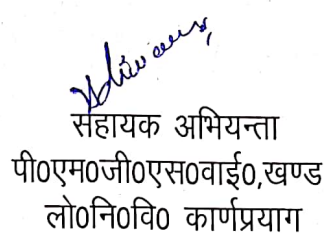 सहायक अभियन्ता
पी0एम0जी0एस0वाई0,खण्ड
लो0नि0वि0 कार्णप्रयाग